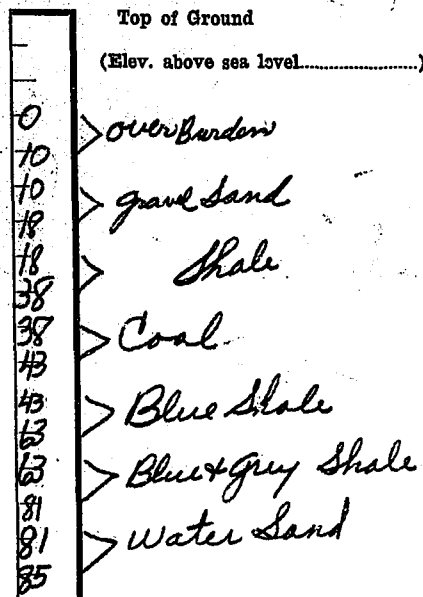 Top of Ground
(Elev. above sea level....................)
0
10 over Burden
10
18 gravel Sand
18
38 Shale
38
43 Coal
43
63 Blue Shale
63
81 Blue + Grey Shale
81
85 Water Sand